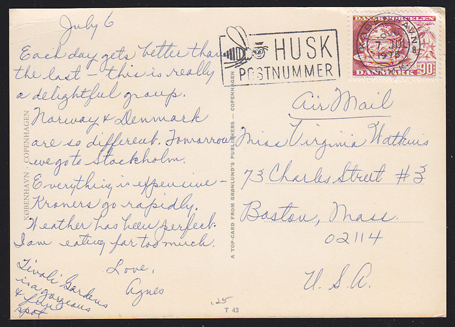 July 6
Each day gets better than
the last - this is really
a delightful group.
Norway & Denmark
are so different. Tomorrow
we go to Stockholm.
Everything is expensive -
Kroners go rapidly.
Weather has been perfect.
I am eating far too much.
Love,
Agnes
Tivoli Gardens
is a gorgeous
& fun
spot
KØBENHAVN COPENHAGEN
A TOP-CARD FROM GRØNLUND'S PUBLISHERS - COPENHAGEN
HUSK
POSTNUMMER
KØBENHAVN
7. JUL.
DANSK PORCELÆN
DANMARK 90
Air Mail
Miss Virginia Watkins
73 Charles Street #3
Boston, Mass.
02114
U.S.A.
.25
T 43